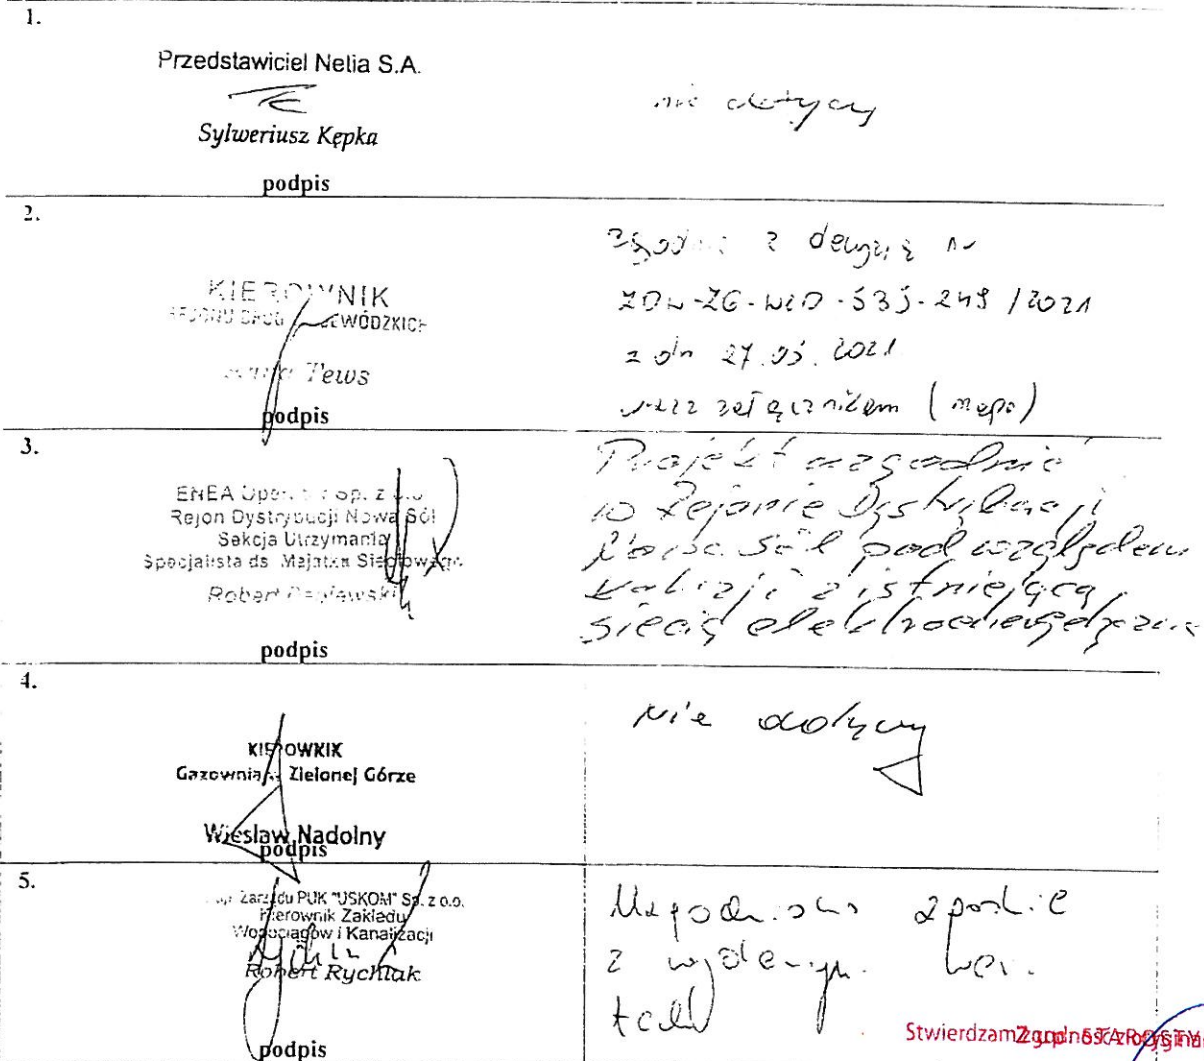 1.
Przedstawiciel Netia S.A.
Sylweriusz Kępka
podpis
nie dotyczy
2.
KIEROWNIK
WÓDZKICH
Tews
podpis
zgodnie z decyzją nr
ZDW-ZG-WZD-533-249/2021
z dn 27.05.2021
wraz załącznikem (mapą)
3.
ENEA Sp. z o.o
Rejon Dystrybucji Nowa Sól
Sekcja Utrzymania
Specjalista ds. Majątku Sieciowego
Robert
podpis
Projekt uzgodnić
w Rejonie Dystrybucji
Nowa Sól pod względem
kolizji z istniejącą
siecią elektroenergetyczną
4.
KIEROWNIK
Gazownia Zielonej Górze
Wiesław Nadolny
podpis
Nie dotyczy
5.
Zarządu PUK "USKOM" Sp. z o.o.
Kierownik Zakładu
Wodociągów i Kanalizacji
Robert Rychlak
podpis
Uzgodniono zgodnie
z
Stwierdzam